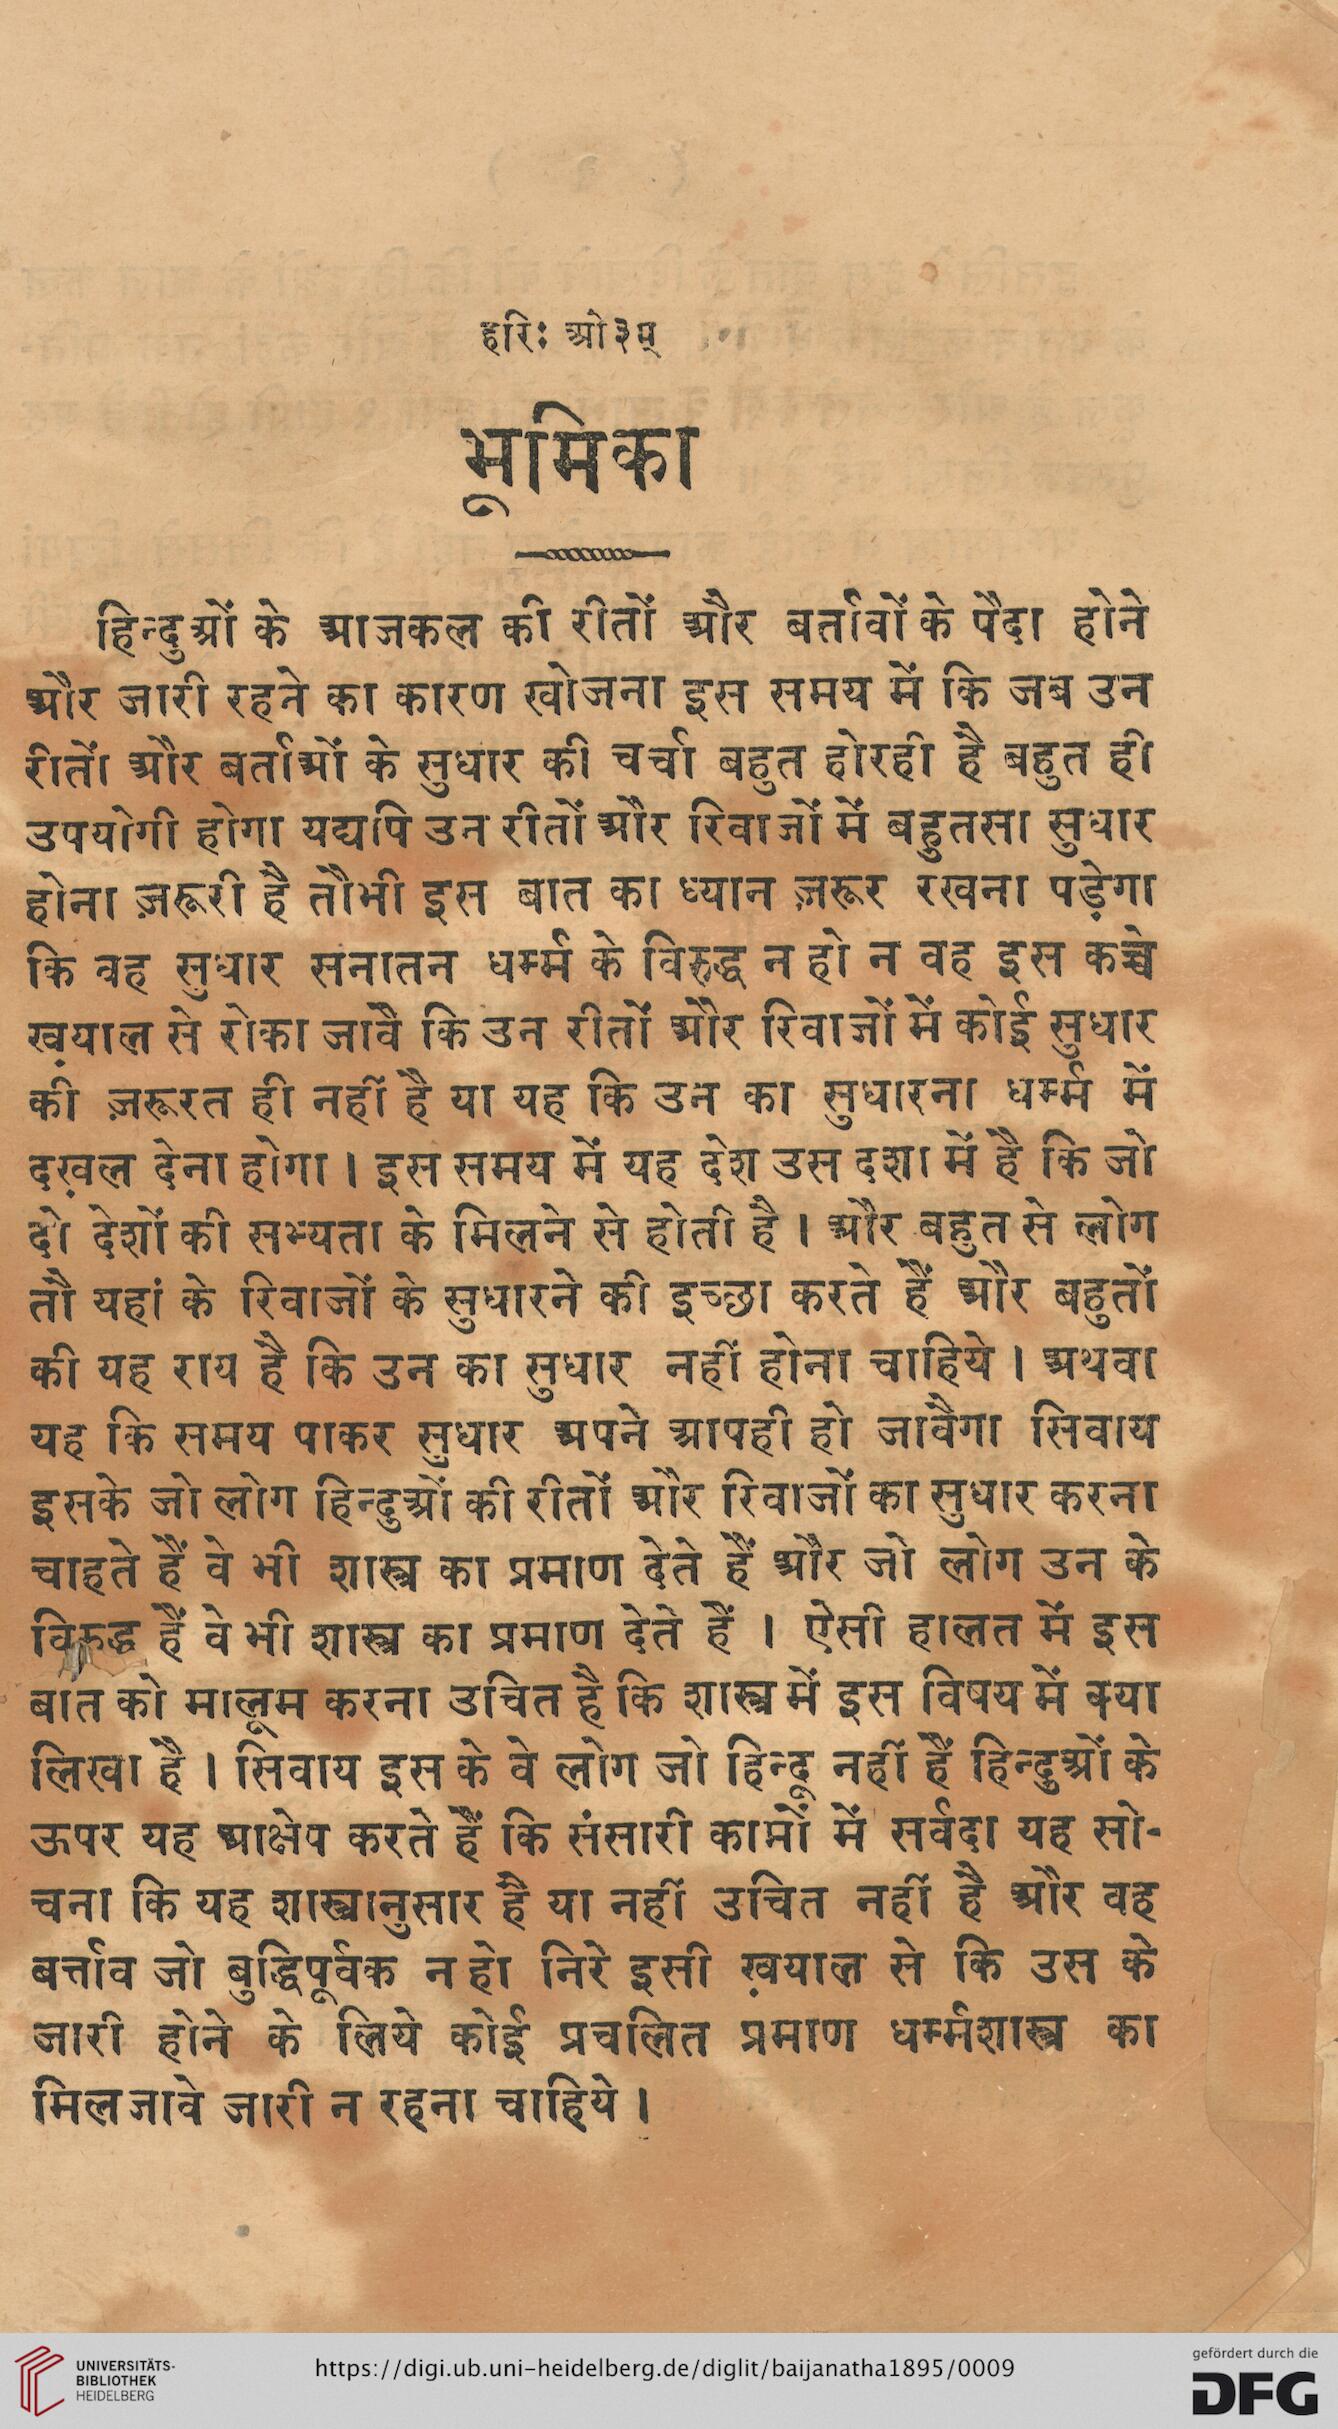 हरिः ओ३म्
भूमिका
हिन्दुओं के आजकल की रीतों और बर्तावों के पैदा होने
और जारी रहने का कारण खोजना इस समय में कि जब उन
रीतों और बर्ताओं के सुधार की चर्चा बहुत होरही है बहुत ही
उपयोगी होगा यद्यपि उन रीतों और रिवाजों में बहुतसा सुधार
होना ज़रूरी है तौभी इस बात का ध्यान ज़रूर रखना पड़ेगा
कि वह सुधार सनातन धर्म्म के विरुद्ध न हो न वह इस कच्चे
ख़याल से रोका जावै कि उन रीतों और रिवाजों में कोई सुधार
की ज़रूरत ही नहीं है या यह कि उन का सुधारना धर्म्म में
दख़ल देना होगा । इस समय में यह देश उस दशा में है कि जो
दो देशों की सभ्यता के मिलने से होती है । और बहुत से लोग
तौ यहां के रिवाजों के सुधारने की इच्छा करते हैं और बहुतों
की यह राय है कि उन का सुधार नहीं होना चाहिये । अथवा
यह कि समय पाकर सुधार अपने आपही हो जावैगा सिवाय
इसके जो लोग हिन्दुओं की रीतों और रिवाजों का सुधार करना
चाहते हैं वे भी शास्त्र का प्रमाण देते हैं और जो लोग उन के
विरुद्ध हैं वे भी शास्त्र का प्रमाण देते हैं । ऐसी हालत में इस
बात को मालूम करना उचित है कि शास्त्र में इस विषय में क्या
लिखा है । सिवाय इस के वे लोग जो हिन्दू नहीं हैं हिन्दुओं के
ऊपर यह आक्षेप करते हैं कि संसारी कामों में सर्वदा यह सो-
चना कि यह शास्त्रानुसार है या नहीं उचित नहीं है और वह
बर्त्ताव जो बुद्धिपूर्वक न हो निरे इसी ख़याल से कि उस के
जारी होने के लिये कोई प्रचलित प्रमाण धर्म्मशास्त्र का
मिलजावे जारी न रहना चाहिये ।
UNIVERSITÄTS-
BIBLIOTHEK
HEIDELBERG
https://digi.ub.uni-heidelberg.de/diglit/baijanatha1895/0009
gefördert durch die
DFG